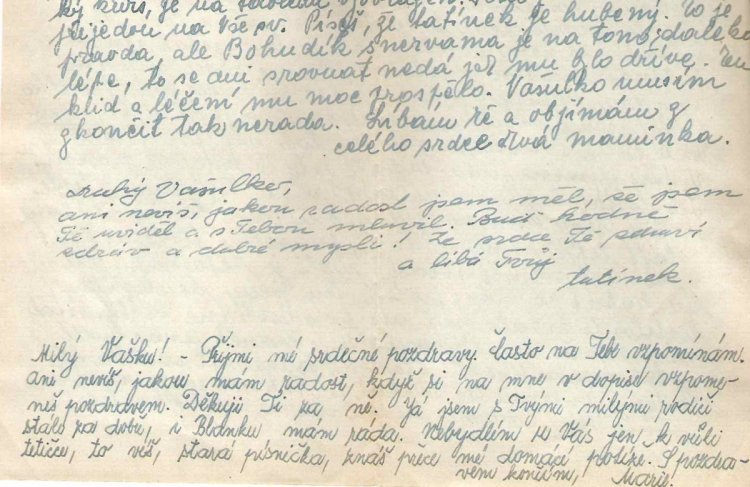 ký kurs, je na
přijedou na Vše sv. Píší, že tatínek je hubený. To je
pravda, ale Bohudík s nervama je na tom daleko
lépe, to se ani srovnat nedá jak mu bylo dříve. Ten
klid a léčení mu moc prospělo. Vašulko musím
končit tak nerada. Líbám tě a objímám z
celého srdce tvá maminka.
Drahý Vašulko,
ani nevíš, jakou radost jsem měl, že jsem
Tě uviděl a s Tebou mluvil. Buď hodně
zdráv a dobré mysli! Ze srdce Tě zdraví
a líbá Tvůj
tatínek.
Milý Vašku! - Přijmi mé srdečné pozdravy. Často na Tebe vzpomínám.
ani nevíš, jakou mám radost, když si na mne v dopise vzpome-
neš pozdravem. Děkuji Ti za ně. Já jsem s Tvými milými rodiči
stále za dobře, i Blanku mám ráda. Nebydlím u Vás jen k vůli
tetičce, to víš, stará písnička, znáš přece mé domácí potíže. S pozdra-
vem končím, Marie.